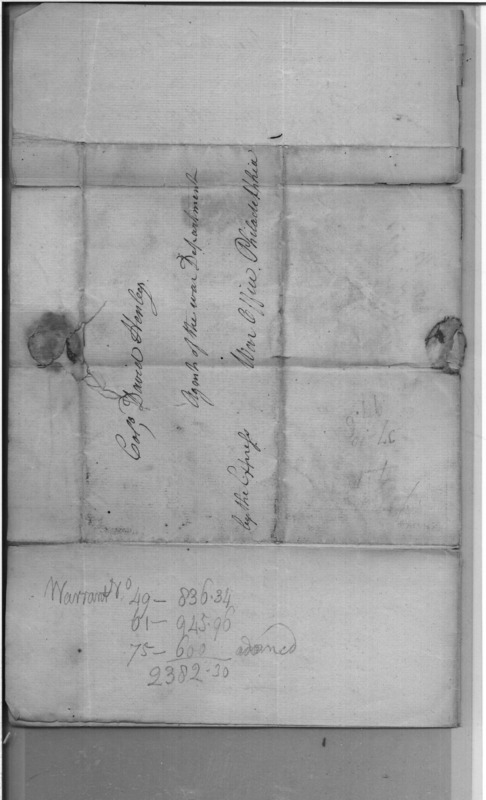 David Henley
Agent of the war Department
War Office Philadelphia
by the Express
Warrant No 49 — 836.34
61 — 945.96
75 — 600
2382.30